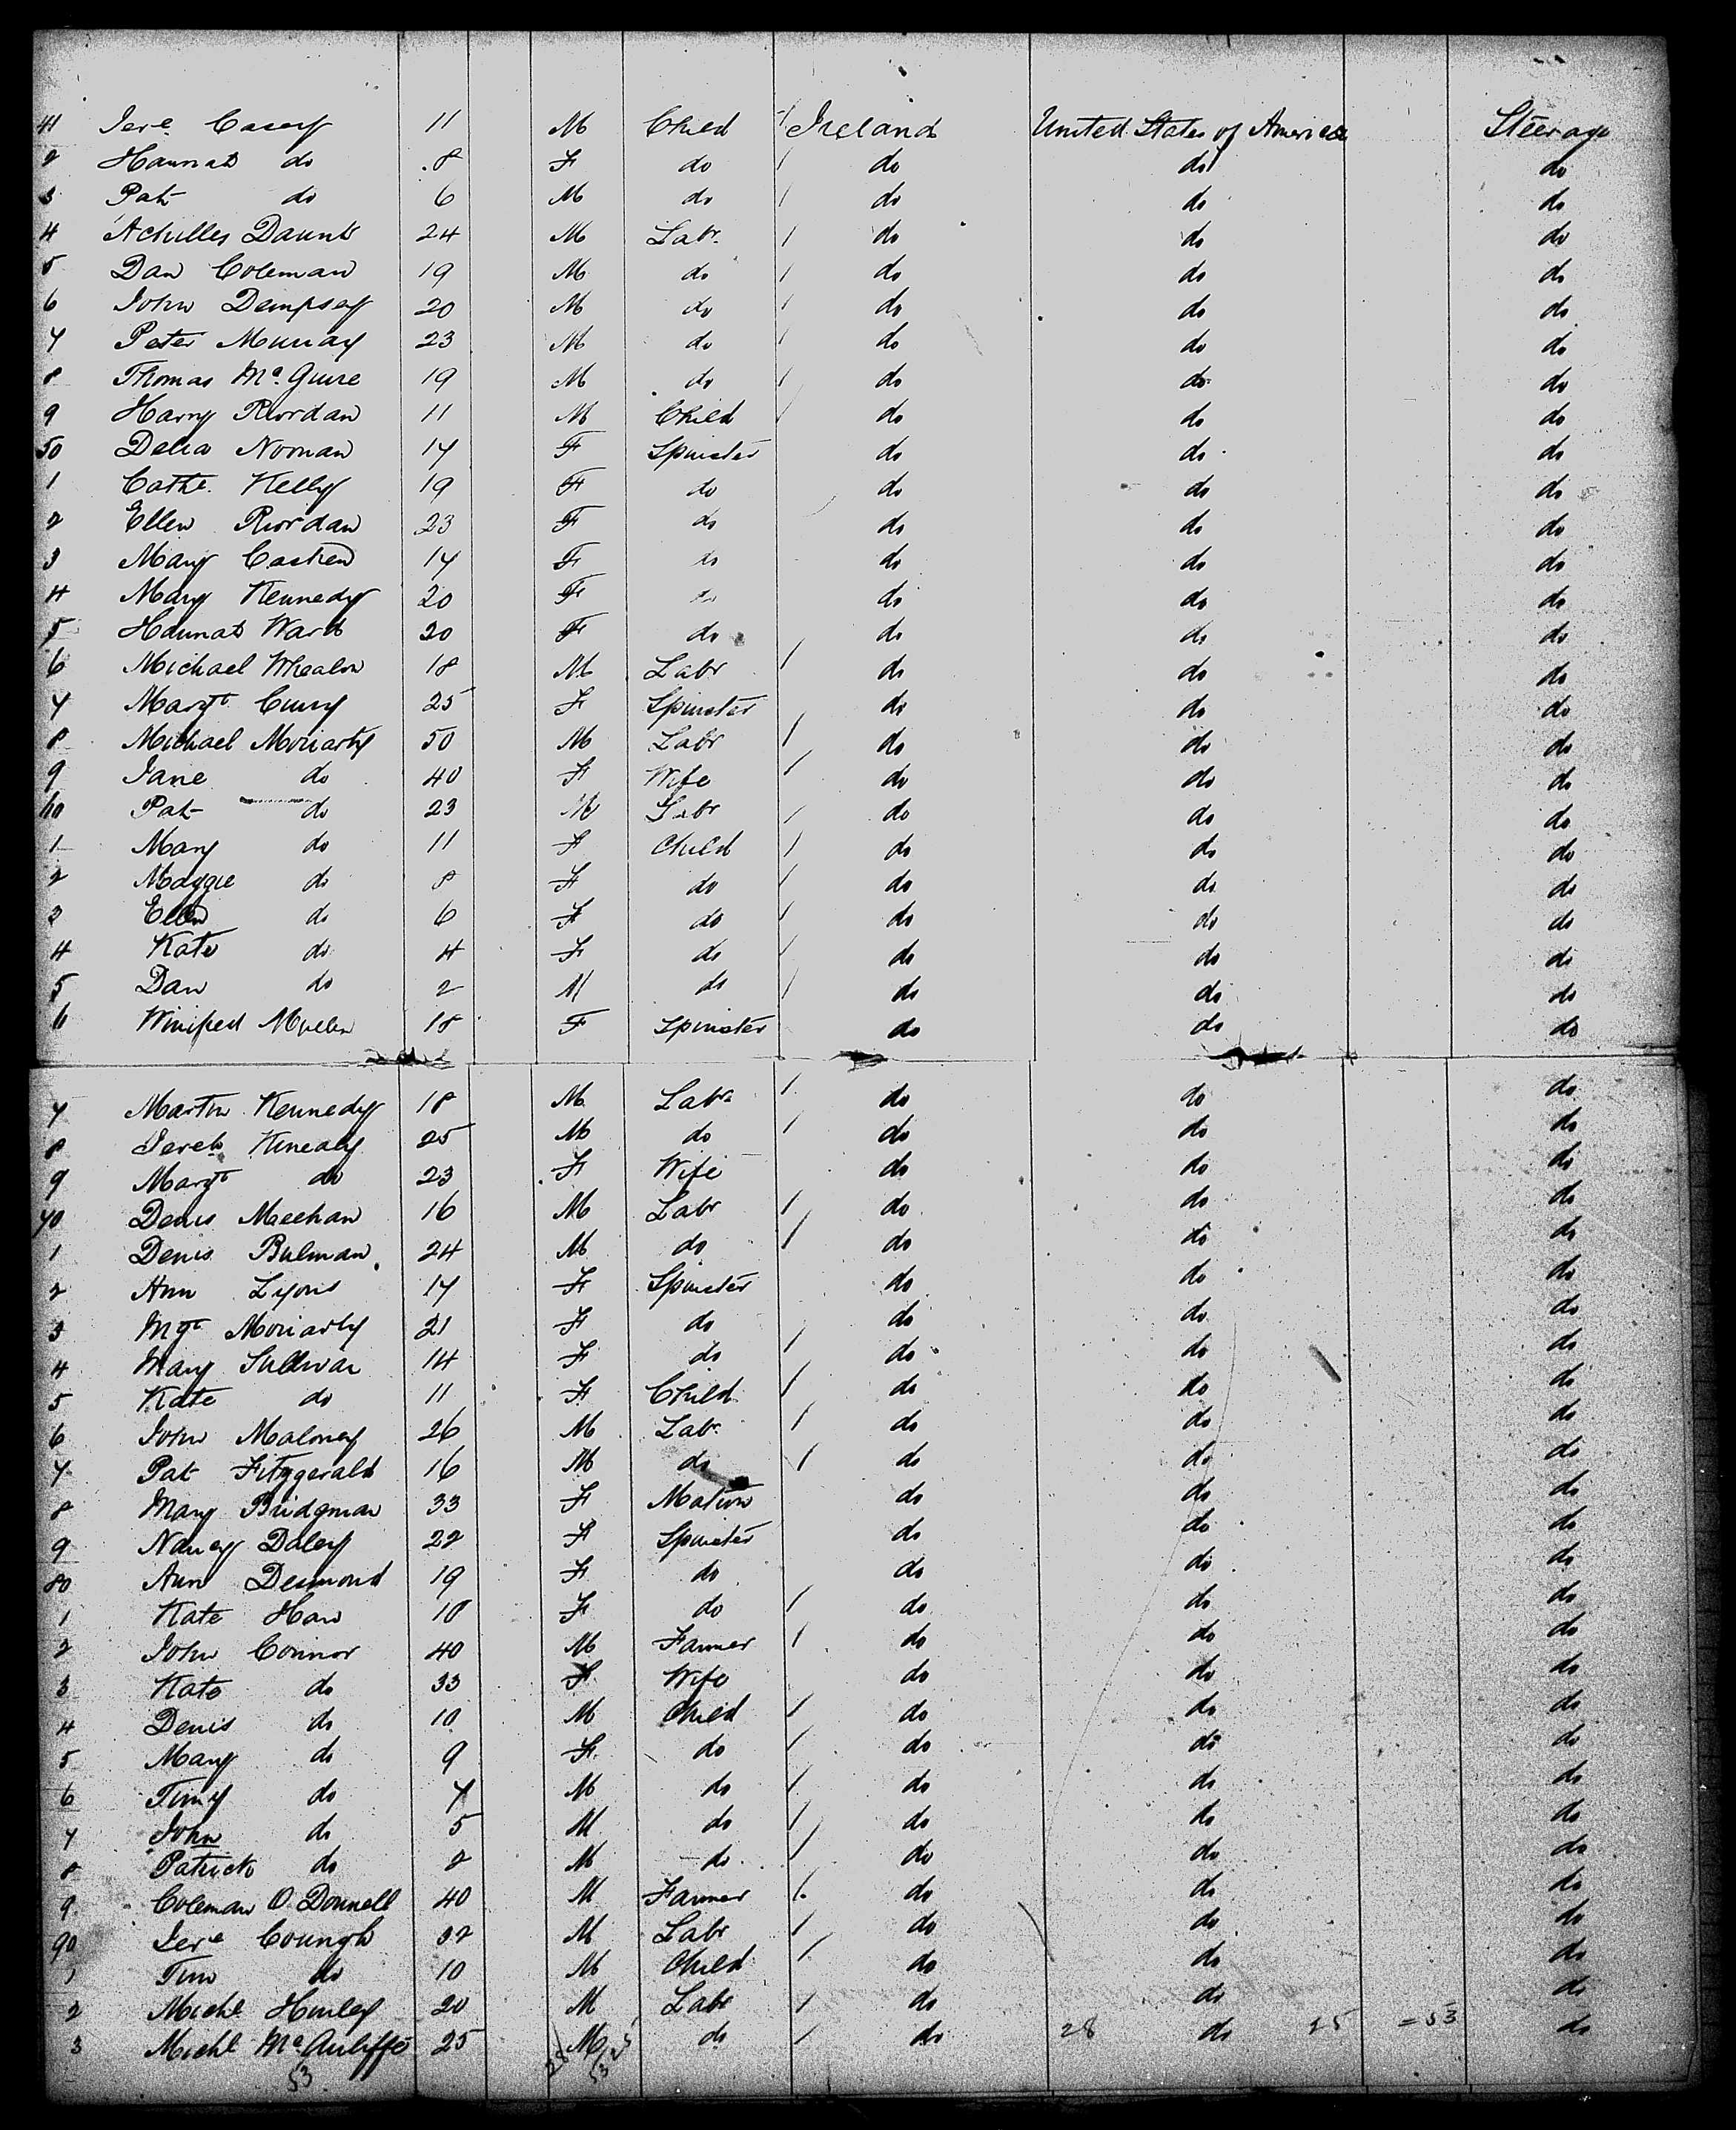 41 Jere Casey 11 M Child Ireland United States of America Steerage
2 Hannah do 8 F do do do do
3 Pat do 6 M do do do do
4 Achilles Daunt 24 M Labr do do do
5 Dan Coleman 19 M do do do do
6 John Dempsey 20 M do do do do
7 Peter Murray 23 M do do do do
8 Thomas Mc Guire 19 M do do do do
9 Harry Riordan 11 M Child do do do
50 Delia Noonan 17 F Spinster do do do
1 Cathe Kelly 19 F do do do do
2 Ellen Riordan 23 F do do do do
3 Mary 17 F do do do do
4 Mary Kennedy 20 F do do do do
5 Hannah Ward 20 F do do do do
6 Michael Whealon 18 M Labr do do do
7 Margt Curry 25 F Spinster do do do
8 Michael Moriarty 50 M Labr do do do
9 Jane do 40 F Wife do do do
60 Pat do 23 M Labr do do do
1 Mary do 11 F Child do do do
2 Maggie do 8 F do do do do
3 Ellen do 6 F do do do do
4 Kate do 4 F do do do do
5 Dan do 2 M do do do do
6 Winifred Mullen 18 F Spinster do do do
7 Martin Kennedy 18 M Labr do do do
8 Jereh Kinealy 25 M do do do do
9 Margt do 23 F Wife do do do
70 Denis Meehan 16 M Labr do do do
1 Denis Bulman 24 M do do do do
2 Ann Lyons 17 F Spinster do do do
3 Mgt Moriarty 21 F do do do do
4 Mary Sullivan 14 F do do do do
5 Kate do 11 F Child do do do
6 John Maloney 26 M Labr do do do
7 Pat Fitzgerald 16 M do do do do
8 Mary Bridgman 33 F Matron do do do
9 Nancy Daley 22 F Spinster do do do
80 Ann Desmond 19 F do do do do
1 Kate 18 F do do do do
2 John Connor 40 M Farmer do do do
3 Kate do 33 F Wife do do do
4 Denis do 10 M Child do do do
5 Mary do 9 F do do do do
6 Timy do 7 M do do do do
7 John do 5 M do do do do
8 Patrick do 2 M do do do do
9 Coleman O'Donnell 40 M Farmer do do do
90 Jere 32 M Labr do do do
1 Tim do 10 M Child do do do
2 Michl Hurley 20 M Labr do do do
3 Michl Mc Auliffe 25 M do do 28 do 25 = 53 do
53 28 53 25